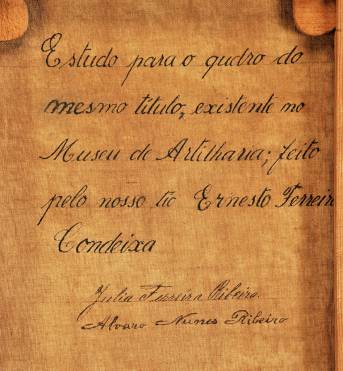 Estudo para o qudro do
mesmo titulo, existente no
Museu de Artilharia; feito
pelo nosso tio Ernesto Ferreira
Condeixa
Julia Ferreira Ribeiro
Alvaro Nunes Ribeiro